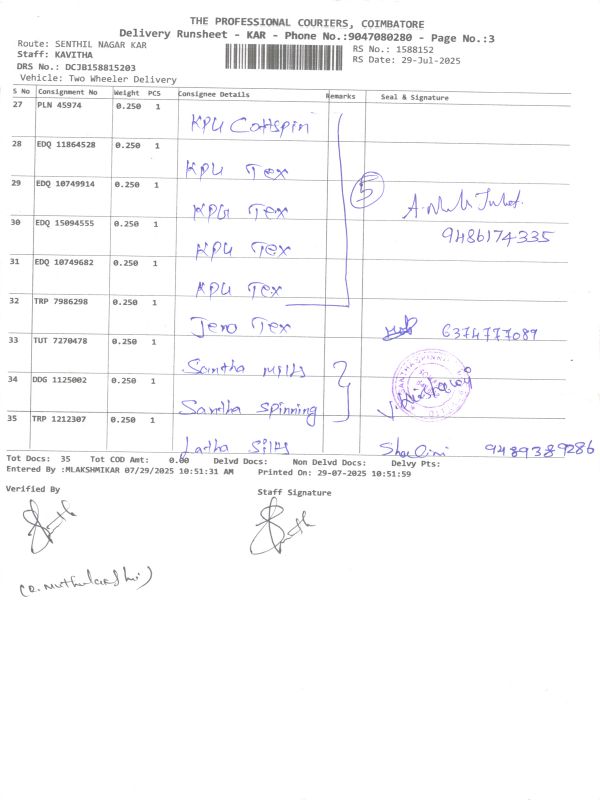 THE PROFESSIONAL COURIERS, COIMBATORE
Delivery Runsheet - KAR - Phone No.:9047080280 - Page No.:3
Route: SENTHIL NAGAR KAR
RS No.: 1588152
Staff: KAVITHA
RS Date: 29-Jul-2025
DRS No.: DCJB158815203
Vehicle: Two Wheeler Delivery
S No Consignment No Weight PCS Consignee Details Remarks Seal & Signature
27 PLN 45974 0.250 1
KPU Cottspin
28 EDQ 11864528 0.250 1
KPU Tex
29 EDQ 10749914 0.250 1
5
KPU Tex
30 EDQ 15094555 0.250 1
9486174335
KPU Tex
31 EDQ 10749682 0.250 1
KPU Tex
32 TRP 7986298 0.250 1
Jero Tex 6374777089
33 TUT 7270478 0.250 1
Santha Mills
34 DDG 1125002 0.250 1
Santha Spinning
35 TRP 1212307 0.250 1
Latha Silks Shalini 9489389286
Tot Docs: 35 Tot COD Amt: 0.00 Delvd Docs: Non Delvd Docs: Delvy Pts:
Entered By :MLAKSHMIKAR 07/29/2025 10:51:31 AM Printed On: 29-07-2025 10:51:59
Verified By
Staff Signature